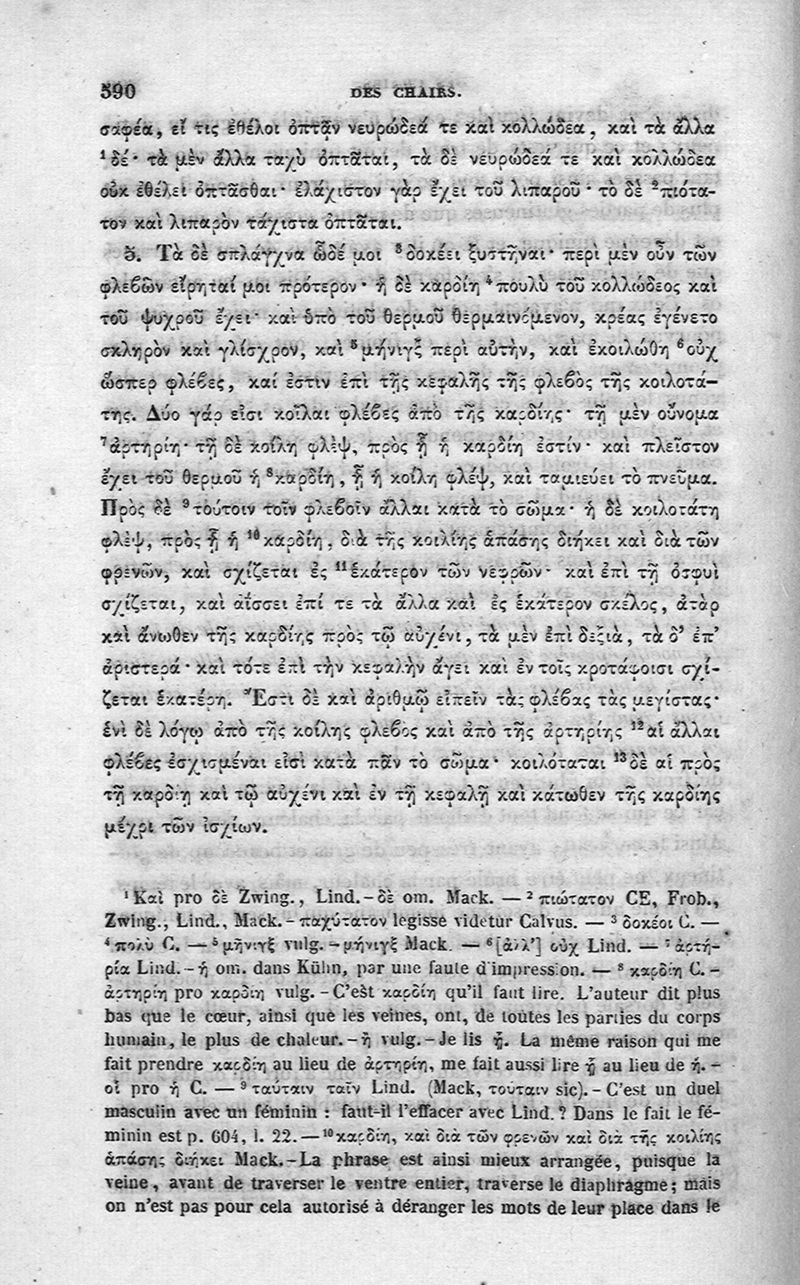 590 DES CHAIRS.
σαφέα, εἴ τις ἐθέλοι ὀπτᾶν νευρώδεά τε καὶ κολλώδεα, καὶ τὰ ἄλλα
¹δέ· τὰ μὲν ἄλλα ταχὺ ὀπτᾶται, τὰ δὲ νευρώδεά τε καὶ κολλώδεα
οὐκ ἐθέλει ὀπτᾶσθαι· ἐλάχιστον γὰρ ἔχει τοῦ λιπαροῦ· τὸ δὲ ²πιότα-
τον καὶ λιπαρὸν τάχιστα ὀπτᾶται.
5. Τὰ δὲ σπλάγχνα ὧδέ μοι ³δοκέει ξυστῆναι· περὶ μὲν οὖν τῶν
φλεϐῶν εἴρηταί μοι πρότερον· ἡ δὲ καρδίη ⁴πουλὺ τοῦ κολλώδεος καὶ
τοῦ ψυχροῦ ἔχει· καὶ ὑπὸ τοῦ θερμοῦ θερμαινόμενον, κρέας ἐγένετο
σκληρὸν καὶ γλίσχρον, καὶ ⁵μήνιγξ περὶ αὐτὴν, καὶ ἐκοιλώθη ⁶οὐχ
ὥσπερ φλέϐες, καί ἐστιν ἐπὶ τῆς κεφαλῆς τῆς φλεϐὸς τῆς κοιλοτά-
της. Δύο γάρ εἰσι κοῖλαι φλέϐες ἀπὸ τῆς καρδίης· τῇ μὲν οὔνομα
⁷ἀρτηρίη· τῇ δὲ κοίλη φλὲψ, πρὸς ᾗ ἡ καρδίη ἐστίν· καὶ πλεῖστον
ἔχει τοῦ θερμοῦ ἡ ⁸καρδίη, ᾗ ἡ κοίλη φλέψ, καὶ ταμιεύει τὸ πνεῦμα.
Πρὸς δὲ ⁹τούτοιν τοῖν φλεϐοῖν ἄλλαι κατὰ τὸ σῶμα· ἡ δὲ κοιλοτάτη
φλὲψ, πρὸς ᾗ ἡ ¹⁰καρδίη, διὰ τῆς κοιλίης ἁπάσης διήκει καὶ διὰ τῶν
φρενῶν, καὶ σχίζεται ἐς ¹¹ἑκάτερον τῶν νεφρῶν· καὶ ἐπὶ τῇ ὀσφυϊ
σχίζεται, καὶ ἀΐσσει ἐπί τε τὰ ἄλλα καὶ ἐς ἑκάτερον σκέλος, ἀτὰρ
καὶ ἄνωθεν τῆς καρδίης πρὸς τῷ αὐχένι, τὰ μὲν ἐπὶ δεξιὰ, τὰ δ’ ἐπ’
ἀριστερά· καὶ τότε ἐπὶ τὴν κεφαλὴν ἄγει καὶ ἐν τοῖς κροτάφοισι σχί-
ζεται ἑκατέρη. Ἔστι δὲ καὶ ἀριθμῷ εἰπεῖν τὰς φλέϐας τὰς μεγίστας·
ἑνὶ δὲ λόγῳ ἀπὸ τῆς κοίλης φλεϐὸς καὶ ἀπὸ τῆς ἀρτηρίης ¹²αἱ ἄλλαι
φλέϐες ἐσχισμέναι εἰσὶ κατὰ πᾶν τὸ σῶμα· κοιλόταται ¹³δὲ αἱ πρὸς
τῇ καρδίῃ καὶ τῷ αὐχένι καὶ ἐν τῇ κεφαλῇ καὶ κάτωθεν τῆς καρδίης
μέχρι τῶν ἰσχίων.
¹Καὶ pro δὲ Zwing., Lind.-δὲ om. Mack. — ²πιώτατον CE, Frob.,
Zwing., Lind., Mack.-παχύτατον legisse videtur Calvus. — ³δοκέοι C. —
⁴πολὺ C. — ⁵μῆνιγξ vulg.-μήνιγξ Mack. — ⁶[ἀλλ’] οὐχ Lind. — ⁷ἀρτη-
ρία Lind.-ἡ om. dans Kühn, par une faute d'impression. — ⁸καρδίη C.-
ἀρτηρίη pro καρδίη vulg.-C'est καρδίη qu'il faut lire. L'auteur dit plus
bas que le cœur, ainsi que les veines, ont, de toutes les parties du corps
humain, le plus de chaleur.-ἢ vulg.-Je lis ᾗ. La même raison qui me
fait prendre καρδίη au lieu de ἀρτηρίη, me fait aussi lire ᾗ au lieu de ἤ.-
οἱ pro ἡ C. — ⁹ταύταιν ταῖν Lind. (Mack, τούταιν sic).-C'est un duel
masculin avec un féminin : faut-il l'effacer avec Lind.? Dans le fait le fé-
minin est p. 604, l. 22.—¹⁰καρδίη, καὶ διὰ τῶν φρενῶν καὶ διὰ τῆς κοιλίης
ἁπάσης διήκει Mack.-La phrase est ainsi mieux arrangée, puisque la
veine, avant de traverser le ventre entier, traverse le diaphragme; mais
on n'est pas pour cela autorisé à déranger les mots de leur place dans le